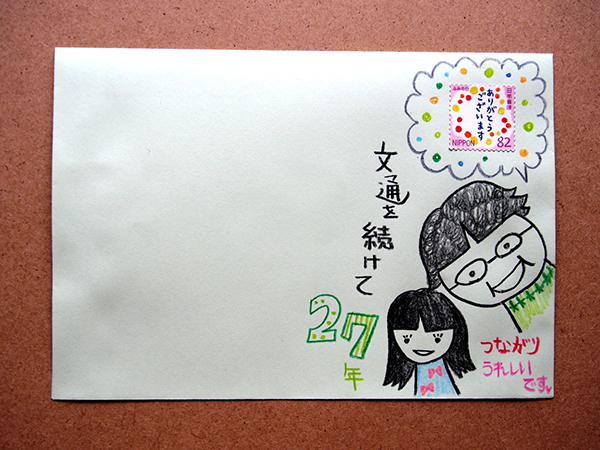 ありがとう
ございます
日本郵便
NIPPON 82
文通を
続けて
27
年
つながり
うれしい
です